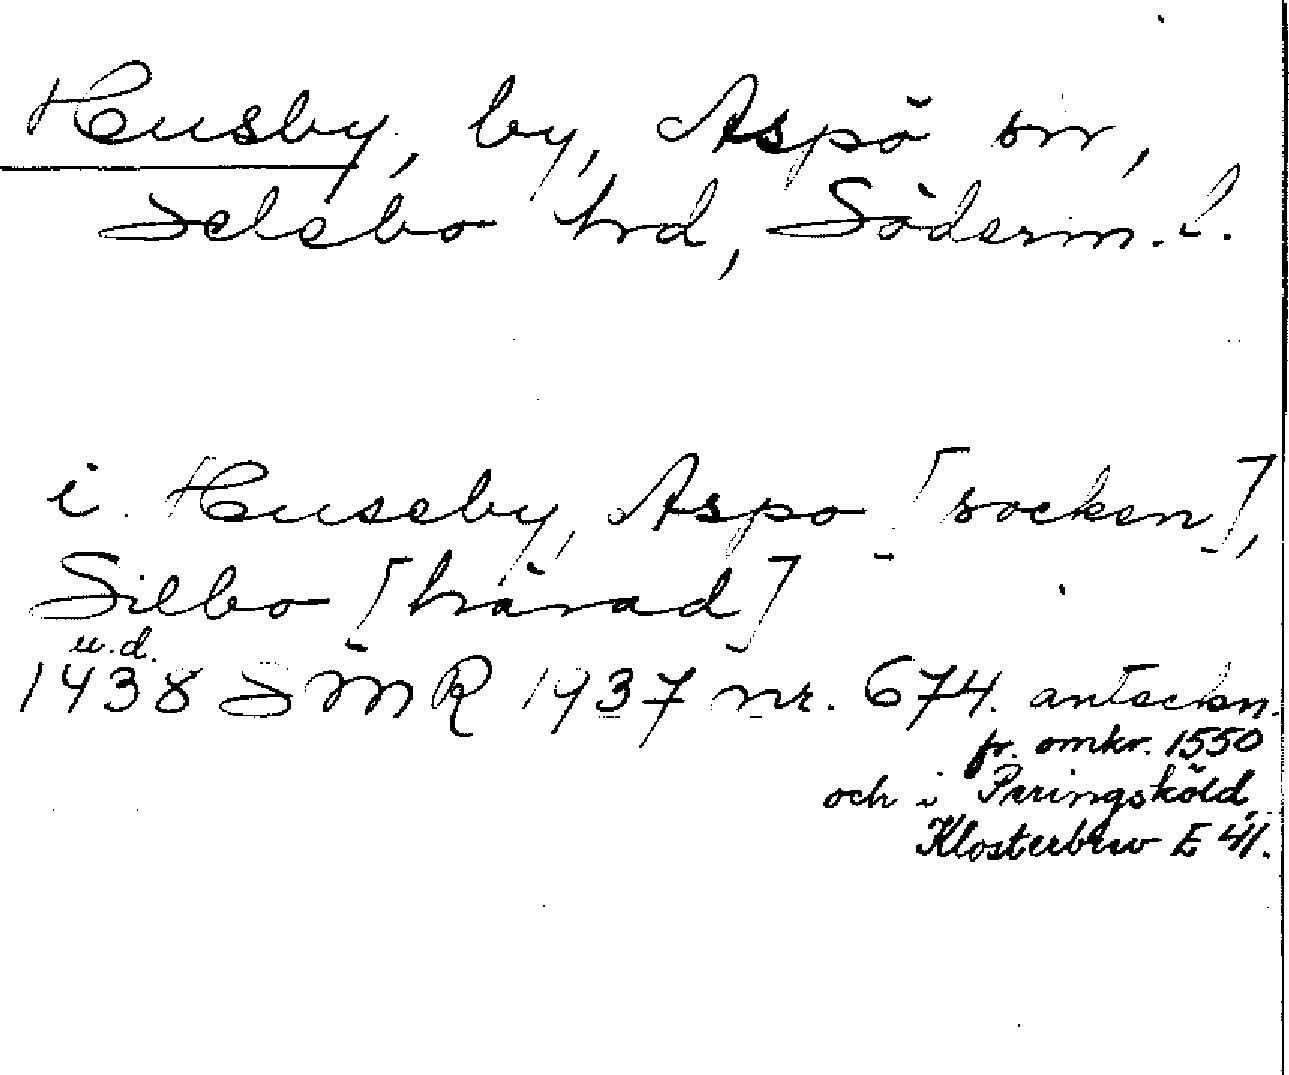 Husby, by, Aspö sn,
Selebo hrd, Söderm. l.
i Huseby, Aspo [socken],
Silbo [härad]
u.d.
1438 SMR 1937 nr. 674. anteckn.
fr. omkr. 1550
och i Peringsköld,
Klosterbrev E 41.